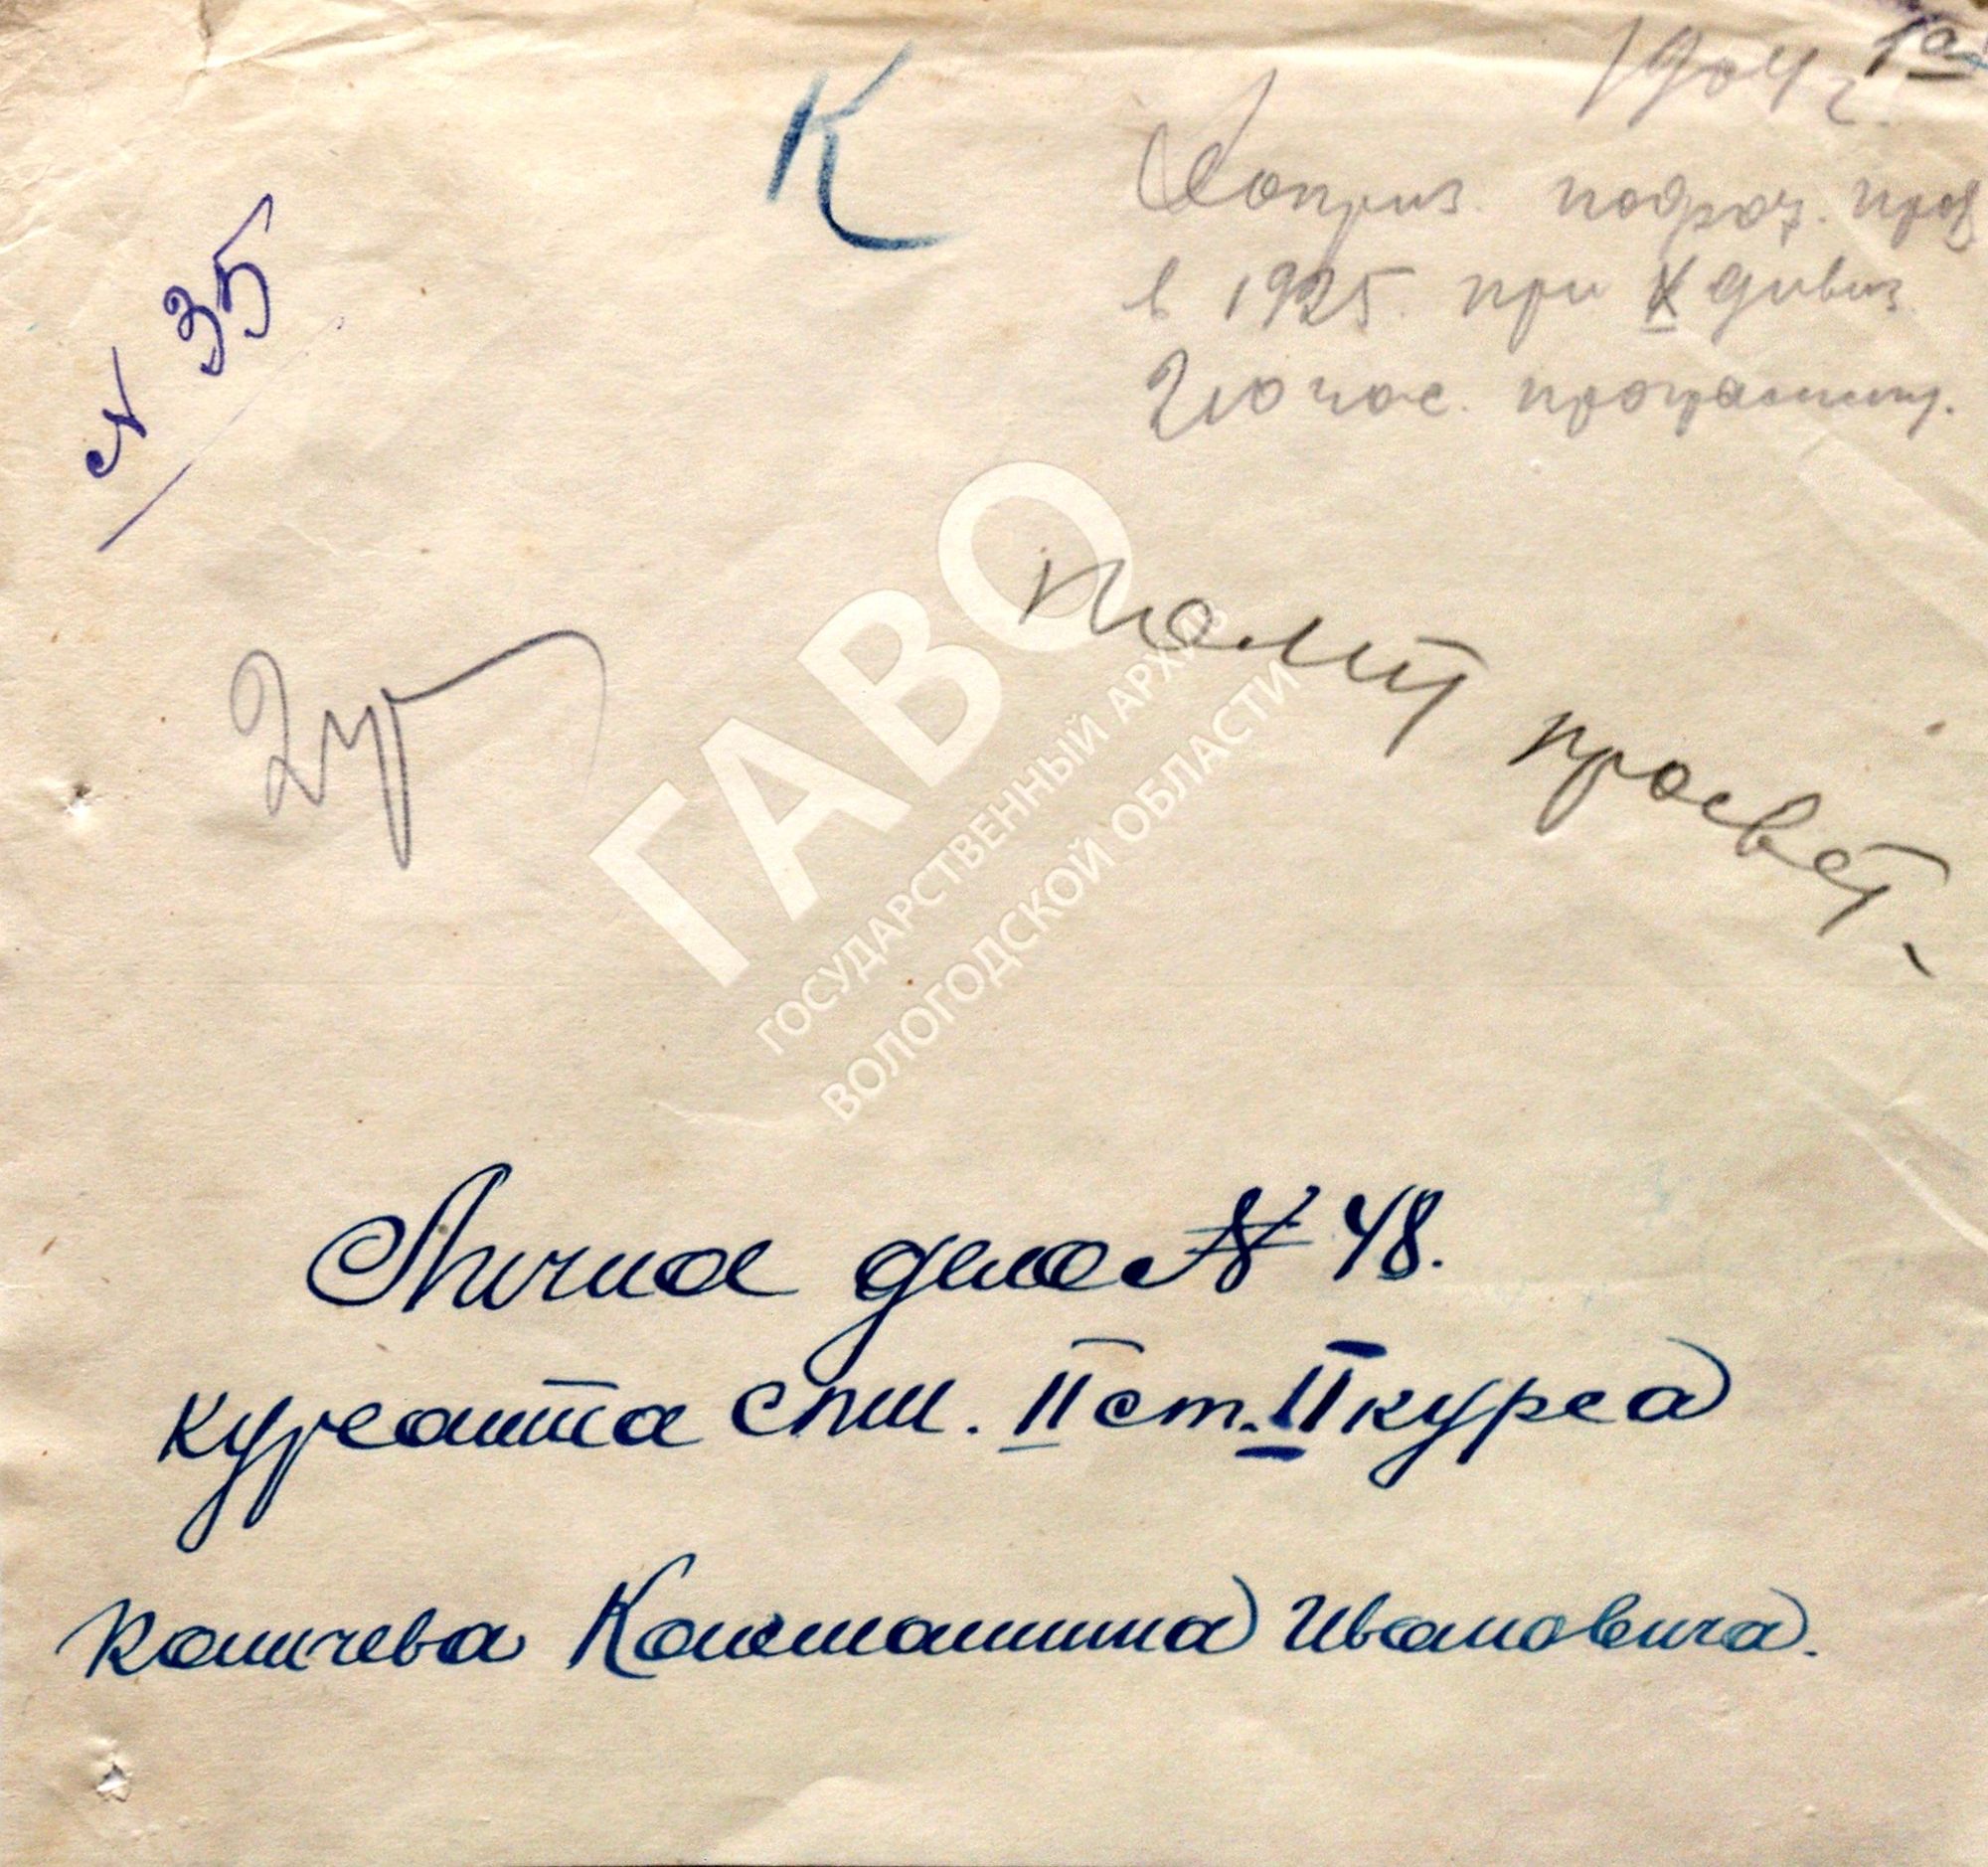 1904 г.
1а
К
Доприз. подгот. прой
в 1925. при X дивиз
210 час. программу.
N 35
Губ
Полит просвет.
ГАВО
ГОСУДАРСТВЕННЫЙ АРХИВ
ВОЛОГОДСКОЙ ОБЛАСТИ
Личное дело № 48.
курсанта спш. II ст. II курса
Коничева Константина Ивановича.